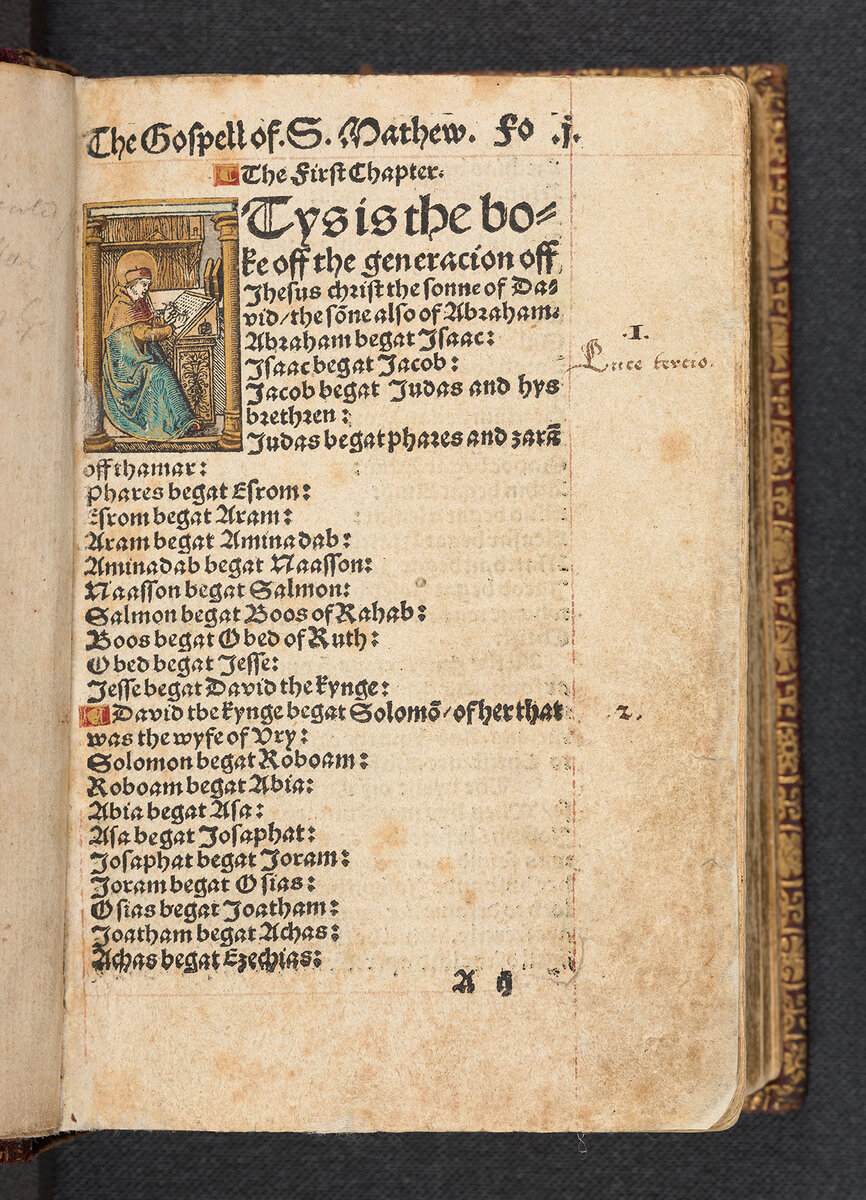 The Gospell of. S. Mathew. Fo .j.
The First Chapter.
Tys is the bo⸗
ke off the generacion off
Jhesus christ the sonne of Da⸗
vid/the sõne also of Abraham.
Abraham begat Jsaac:
Jsaac begat Jacob:
Jacob begat Judas and hys
brethren:
Judas begat phares and zarã
off thamar:
phares begat Esrom:
Esrom begat Aram:
Aram begat Aminadab:
Aminadab begat Naasson:
Naasson begat Salmon:
Salmon begat Boos of Rahab:
Boos begat Obed of Ruth:
Obed begat Jesse:
Jesse begat David the kynge:
David the kynge begat Solomõ/of her that
was the wyfe of Vry:
Solomon begat Roboam:
Roboam begat Abia:
Abia begat Asa:
Asa begat Josaphat:
Josaphat begat Joram:
Joram begat Osias:
Osias begat Joatham:
Joatham begat Achas:
Achas begat Ezechias:
A ij
.1.
Luce tercio.
2.